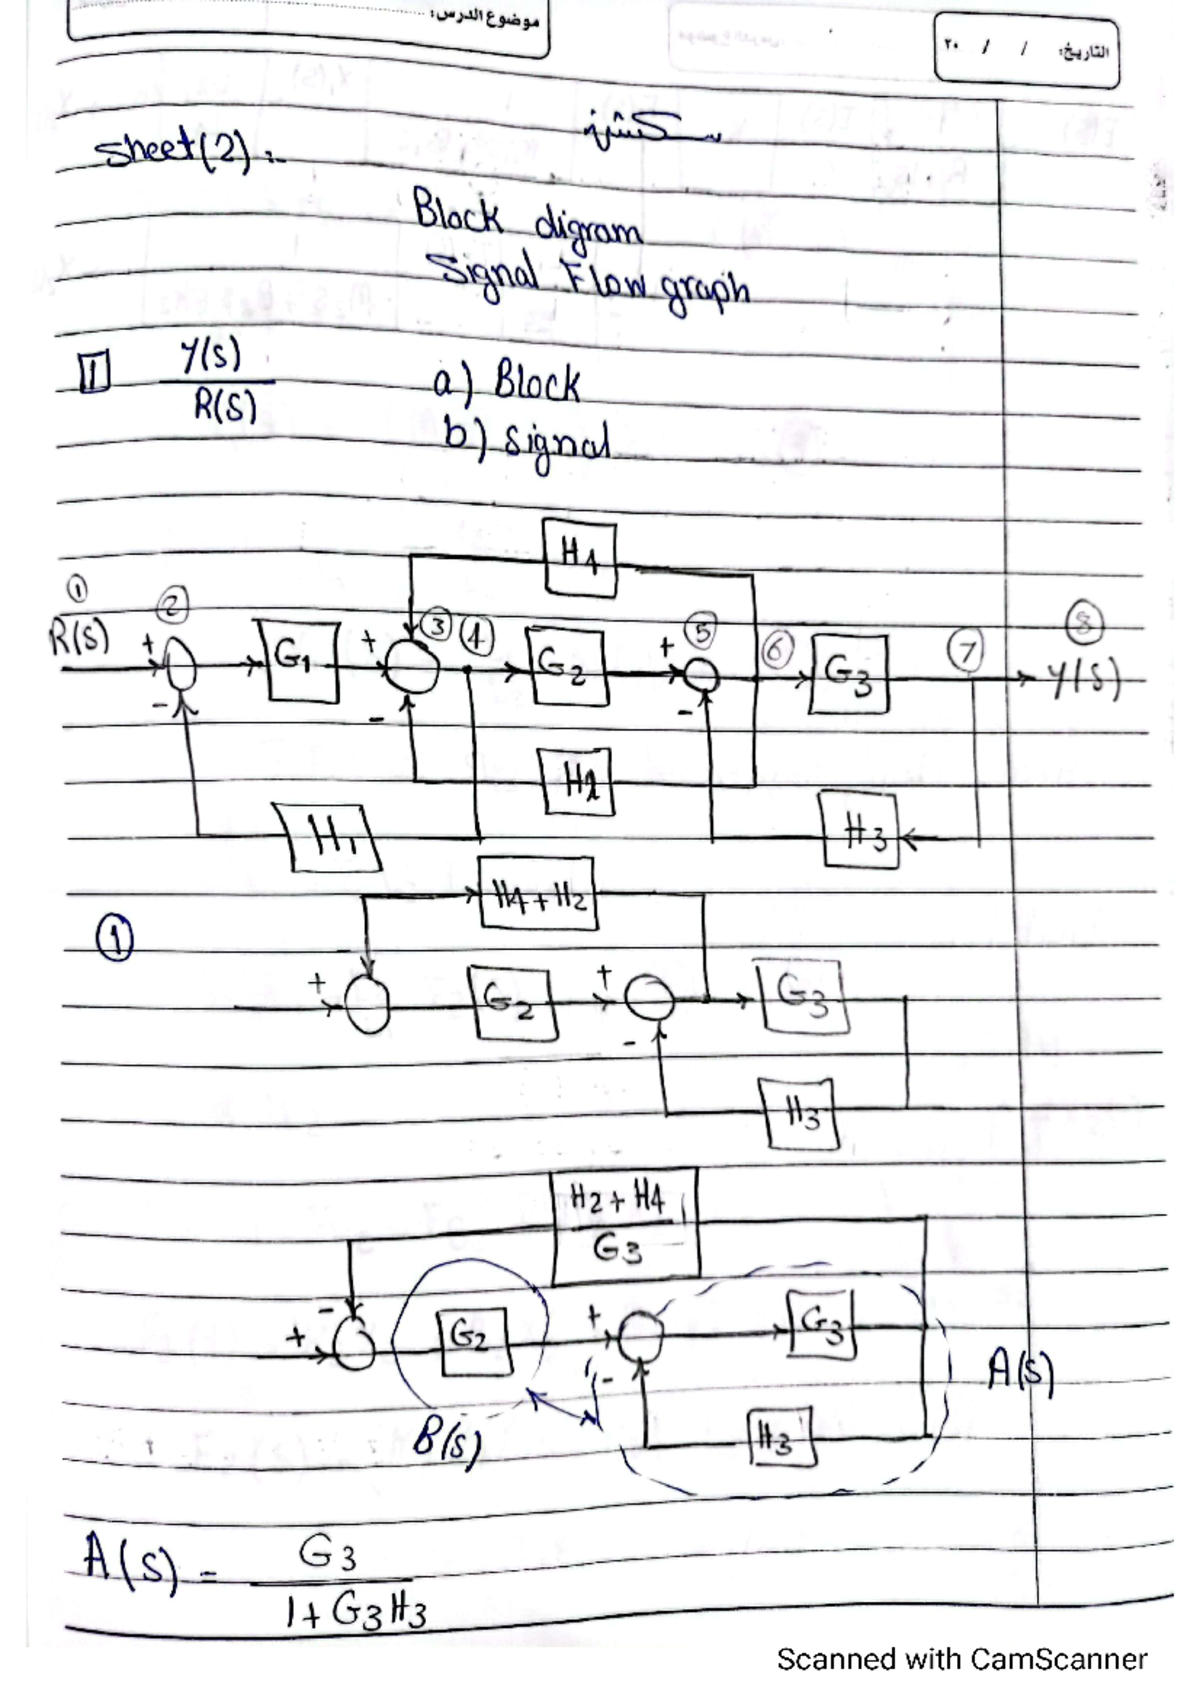 موضوع الدرس:
التاريخ: / / ٢٠
سكشن
Sheet(2):-
Block digram
Signal Flow graph
1 Y(S)
R(S)
a) Block
b) signal
H4
1 2 3 4 5 6 7 8
R(S) + G1 + G2 + G3 Y(S)
- - -
H2
H1 H3
H4+H2
1
+ G2 + G3
-
H3
H2+H4
G3
-
+ G2 + G3
- A(S)
B(S) H3
A(S) = G3
1+G3H3
Scanned with CamScanner